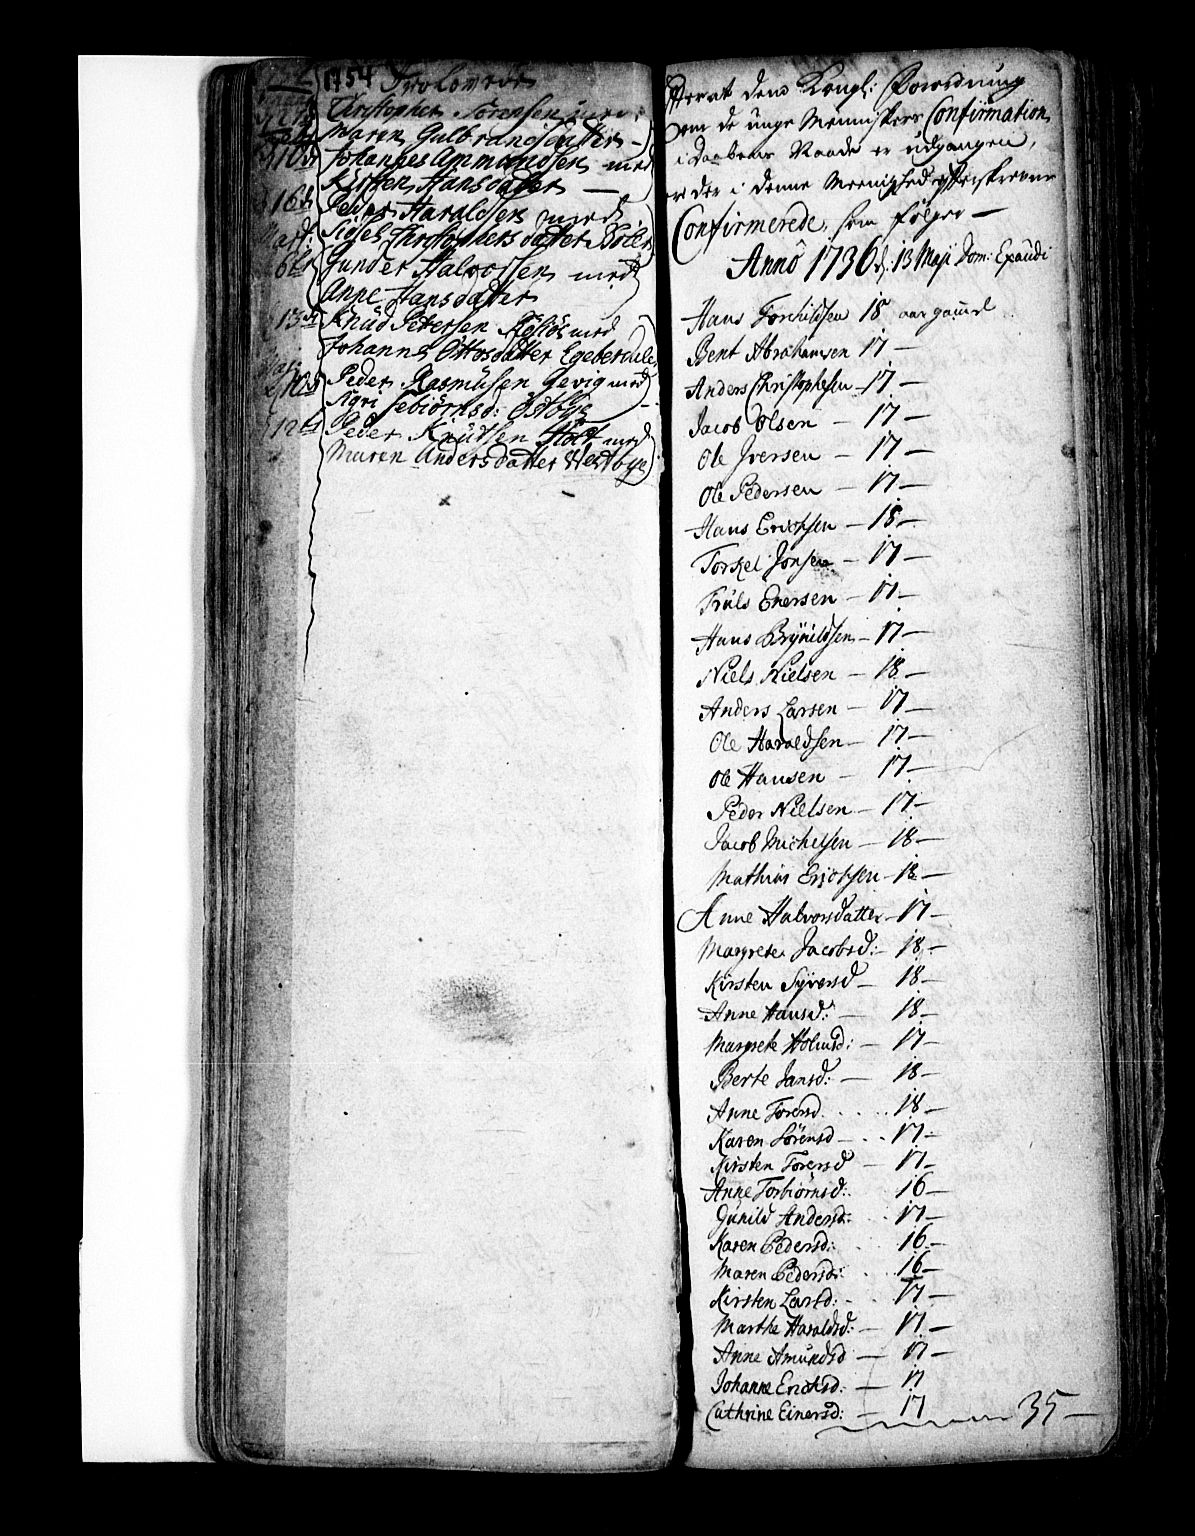 1754 Trolovede
Christopher Sørensen med
Maren Gulbrandsdatter –
Johannes Ammundsen med
Kirsten Hansdatter —
16
Peder Haraldsen med
Sidsel Christophersdatter
Gunder Halvorsen med
Anne Hansdatter
13
Knud Petersen med
Johanne Ottosdatter Egeberdalen
Peder Rasmusen Gevig med
Sigri Tebiørnsd: Østbye
12
Peder Knutsen Holt med
Maren Andersdatter Westbye
Efterat dend Kongl: Forordning
om de unge Menniskers Confirmation
i Daabens Naade er udgangen,
er der i denne Meenighed efterskrevne
Confirmerede, som følger —
Anno 1736 d. 13 Maji Dom: Exaudi
Hans Torchildsen 18 aar gammel
Bent Abrahamsen 17 —
Anders Christophersen – 17 —
Jacob Olsen — 17 —
Ole Iversen — 17 —
Ole Pedersen — 17 —
Hans Erichsen — 18 —
Torkel Jonsen — 17 —
Truls Enersen — 17 —
Hans Brynildsen — 17 —
Niels Nielsen — 18 —
Anders Larsen — 17 —
Ole Haraldsen — 17 —
Ole Hansen — 17 —
Peder Nielsen — 17 —
Jacob Michelsen — 18 —
Mathias Erichsen – 18 —
Anne Halvorsdatter – 17 —
Margrete Jacobsd: – 18 —
Kirsten Syversd — 18 —
Anne Hansd: — 18 —
Margrete Holmsd: — 17 —
Berte Jansd: — 18 —
Anne Torersd. . . . . 18 —
Karen Sørensd — . . 17 —
Kirsten Torersd — 17 —
Anne Torbiørnsd: 16 —
Gunild Andersd: . . 17 —
Karen Pedersd: . . 16 —
Maren Pedersd: . . 16 —
Kirsten Larsd: . . 17 —
Marthe Haraldsd: — 17 —
Anne Amundsd — 17 —
Johanne Erichsd: — 17
Cathrine Einersd: — 17 35 —